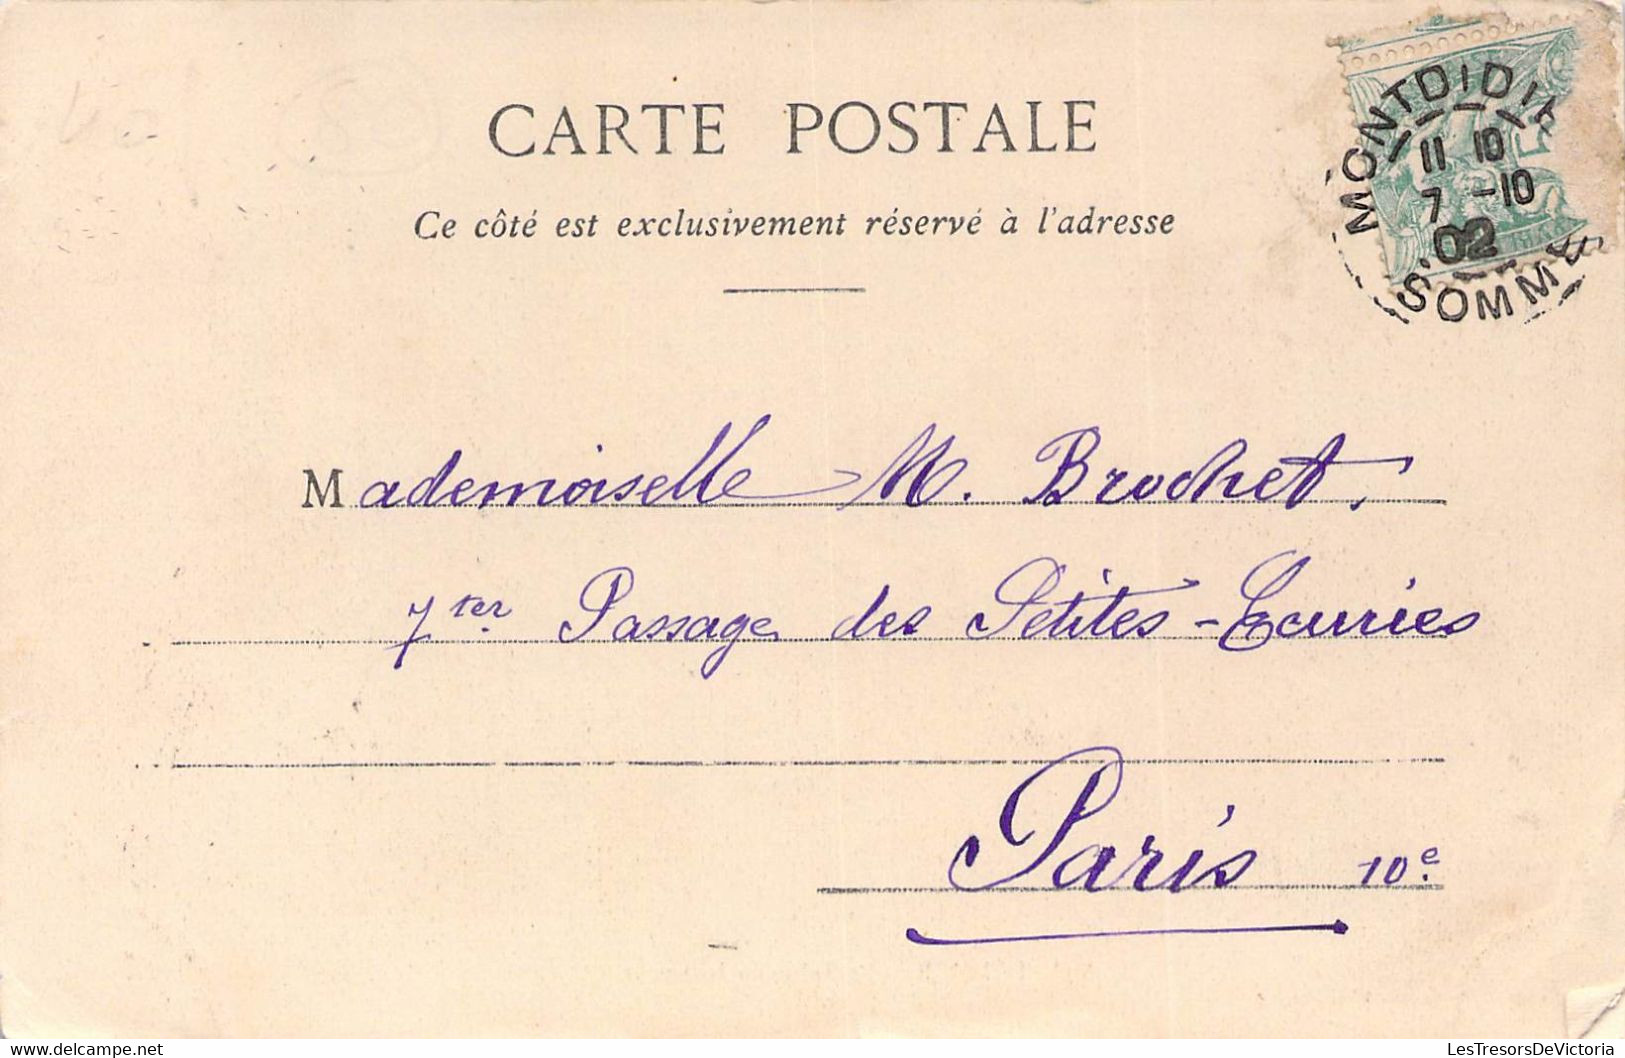 CARTE POSTALE
Ce côté est exclusivement réservé à l'adresse
MONTDIDIER
11 10
7 -10
02
SOMME
Mademoiselle M. Brochet,
7ter Passage des Petites-Ecuries
Paris 10e.
www.delcampe.net
LesTresorsDeVictoria